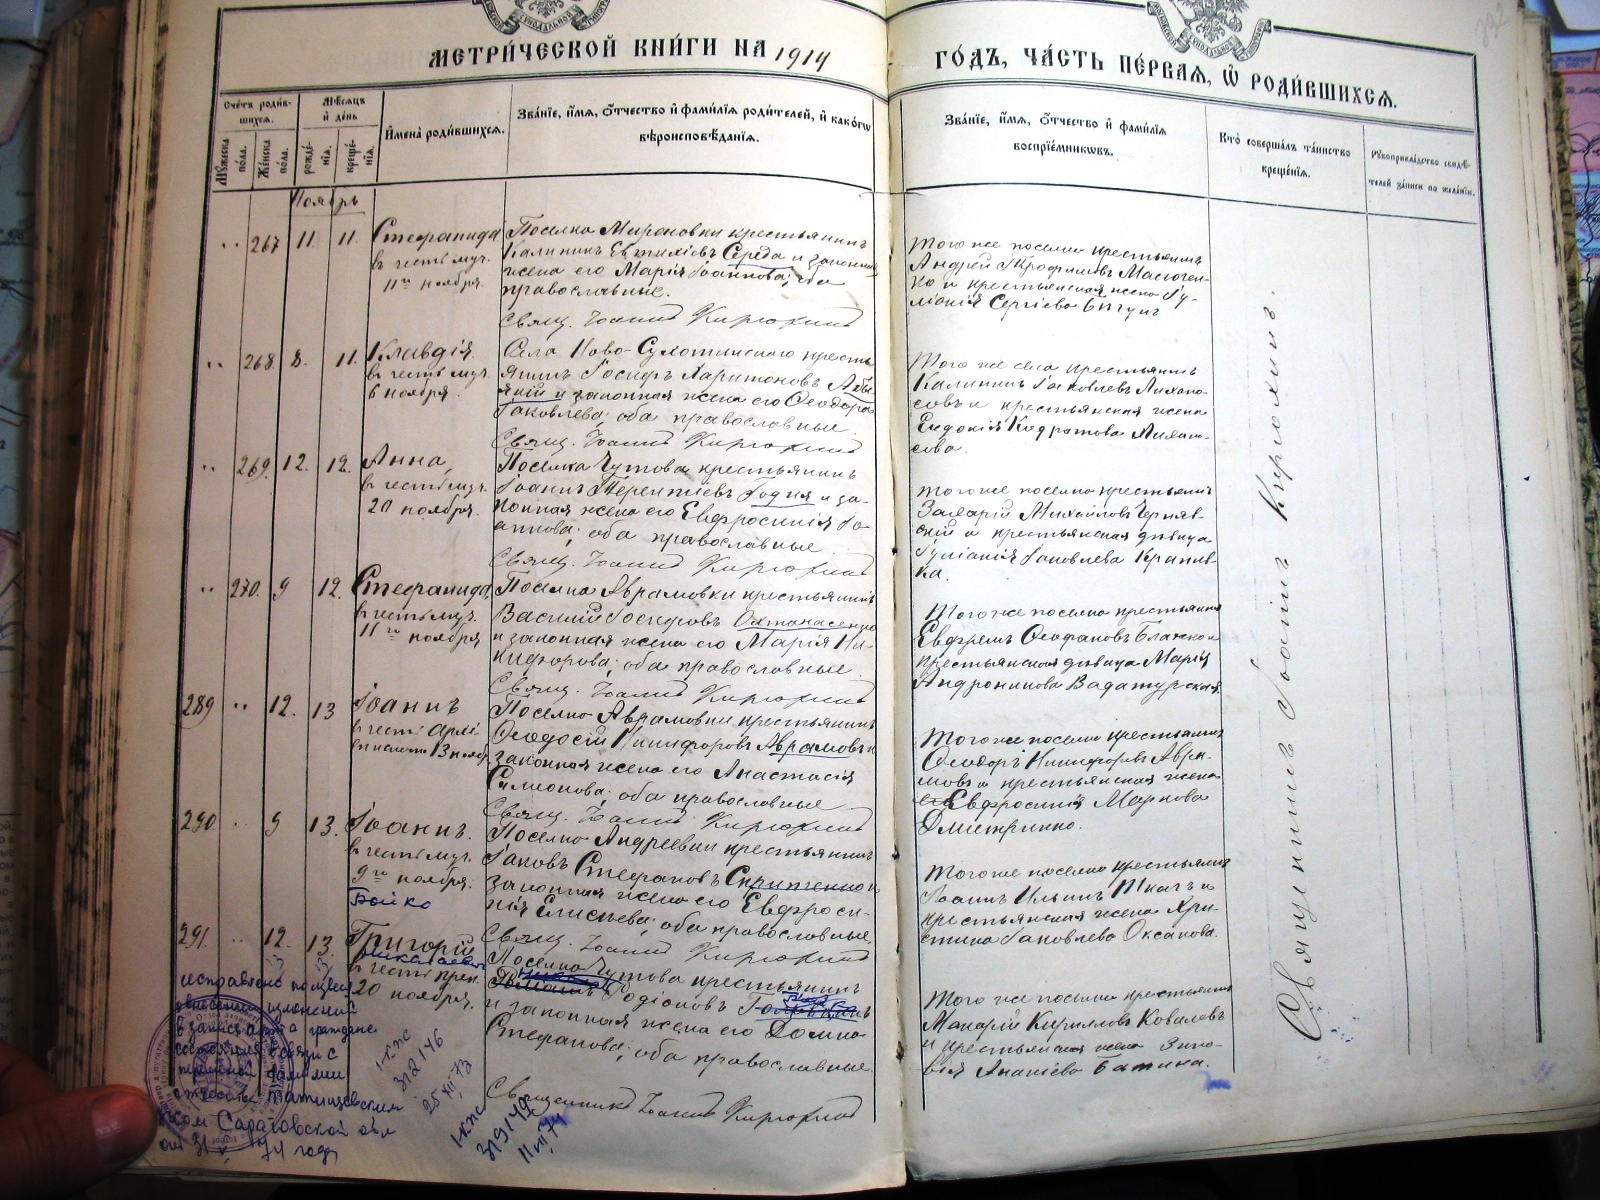 МЕТРИ́ЧЕСКОЙ КНИ́ГИ НА 1914
ГО́ДЪ, ЧА́СТЬ ПЕ́РВАѦ, Ѡ҆ РОДИ́ВШИХСѦ.
Сче́тъ роди́в-
шихсѧ.
Мѣ́сѧцъ
и҆ де́нь
Мꙋ́жеска
по́ла.
Же́нска
по́ла.
рожде́-
нїѧ.
креще́-
нїѧ.
И҆мена̀ роди́вшихсѧ.
Зва́нїе, и҆́мѧ, ѻ҆́тчество и҆ фами́лїѧ роди́телей, и҆ како́гѡ
вѣроисповѣ́данїѧ.
Зва́нїе, и҆́мѧ, ѻ҆́тчество и҆ фами́лїѧ
воспрїе́мникѡвъ.
Кто̀ соверша́лъ та́инство
креще́нїѧ.
Рꙋкоприкла́дство свидѣ́-
телей за́писи по жела́нїю.
Ноябрь
267 11. 11. Стефанида
въ честь муч.
11го ноября.
Поселка Мироновки крестьянинъ
Калинникъ Евтихіевъ Середа и законная
жена его Марія Іоаннова; оба
православные.
Свящ. Іоаннъ Кирюхинъ
Того же поселка крестьянинъ
Андрей Трофимовъ
и крестьянская жена Іу-
ліанія Сергіева
268. 8. 11. Клавдія.
въ честь муч.
6 ноября.
Села Ново-Сухотинского кресть-
янинъ Іосифъ Харитоновъ
и законная жена его Ѳеодора
Іаковлева; оба православные.
Свящ. Іоаннъ Кирюхинъ
Того же села крестьянинъ
Калинникъ Іаковлевъ Лихано-
совъ и крестьянская жена
Евдокія Лихано-
сова.
269. 12. 12. Анна,
въ честь муч.
20 ноября.
Поселка Чутова крестьянинъ
Іоаннъ Терентіевъ Годня и за-
конная жена его Евфросинія Іо-
аннова; оба православные.
Свящ. Іоаннъ Кирюхинъ
Того же поселка крестьянинъ
Захарій Михайловъ Черняв-
скій и крестьянская дѣвица
Іуліанія Іаковлева Крапив-
ка.
270. 9 12. Стефанида,
въ честь муч.
11го ноября
Поселка Аврамовки крестьянинъ
Василій Іосифовъ
и законная жена его Марія Ни-
кифорова; оба православные.
Свящ. Іоаннъ Кирюхинъ
Того же поселка крестьянинъ
Евфремъ Ѳеофановъ
крестьянская дѣвица Марія
Андроникова Вадатурская.
289 12. 13 Іоаннъ
въ честь
13 ноябр.
Поселка Аврамовки крестьянинъ
Ѳеодосій Никифоровъ Аврамовъ и
законная жена его Анастасія
Симеонова; оба православные
Свящ. Іоаннъ Кирюхинъ
Того же поселка крестьянинъ
Ѳеодоръ Никифоровъ Авра-
мовъ и крестьянская жена
Евфросинія Маркова
Дмитренко.
290 9 13. Іоаннъ.
въ честь муч.
9го ноября.
Бойко
Поселка Андреевки крестьянинъ
Іаковъ Стефановъ
законная жена его Евфроси-
нія Елисѣева; оба православные.
Свящ. Іоаннъ Кирюхинъ
Того же поселка крестьянинъ
Іоаннъ Ильинъ Ткачъ и
крестьянская жена Хри-
стина Іаковлева Оксанова.
291. 12. 13. Григорій
Николаевич
въ честь преп.
20 ноября.
Поселка Чутова крестьянинъ
Родіоновъ
и законная жена его Домна
Стефанова; оба православные.
Священникъ Іоаннъ Кирюхинъ
Того же поселка крестьянинъ
Макарій Кирилловъ Ковалевъ
и крестьянская жена Зино-
вія Ананіева
Священникъ Іоаннъ Кирюхинъ.
исправлено
изменений
в записи акта граждан.
состояния в связи с
Татищевским
Саратовской обл
от 31 V 74 года
1-КЖС
312146
25 XII 73
1-КЖС
319149
11 VII 74